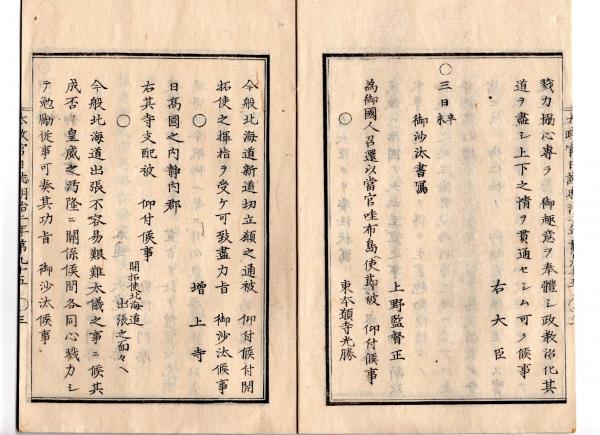 戮力協心専ラ御趣意ヲ奉體シ政教治化其
道ヲ盡シ上下之情ヲ貫通セシム可ク候事
右大臣
〇三日辛未
御沙汰書寫
上野監督正
為御國人召還以當官哇布島使節被 仰付候事
〇
東本願寺光勝
今般北海道新道切立願之通被 仰付候付開
拓使之揮指ヲ受ケ可致盡力旨 御沙汰候事
〇
増上寺
日高國之内静内郡
右其寺支配被 仰付候事
〇
開拓使北海道
出張之面々ヘ
今般北海道出張不容易艱難太儀之事ニ候其
成否ハ皇威之汚隆ニ關係候間各同心戮力シ
テ勉勵従事可奏其功旨 御沙汰候事
太政官日誌明治二年第九十五 〇 三